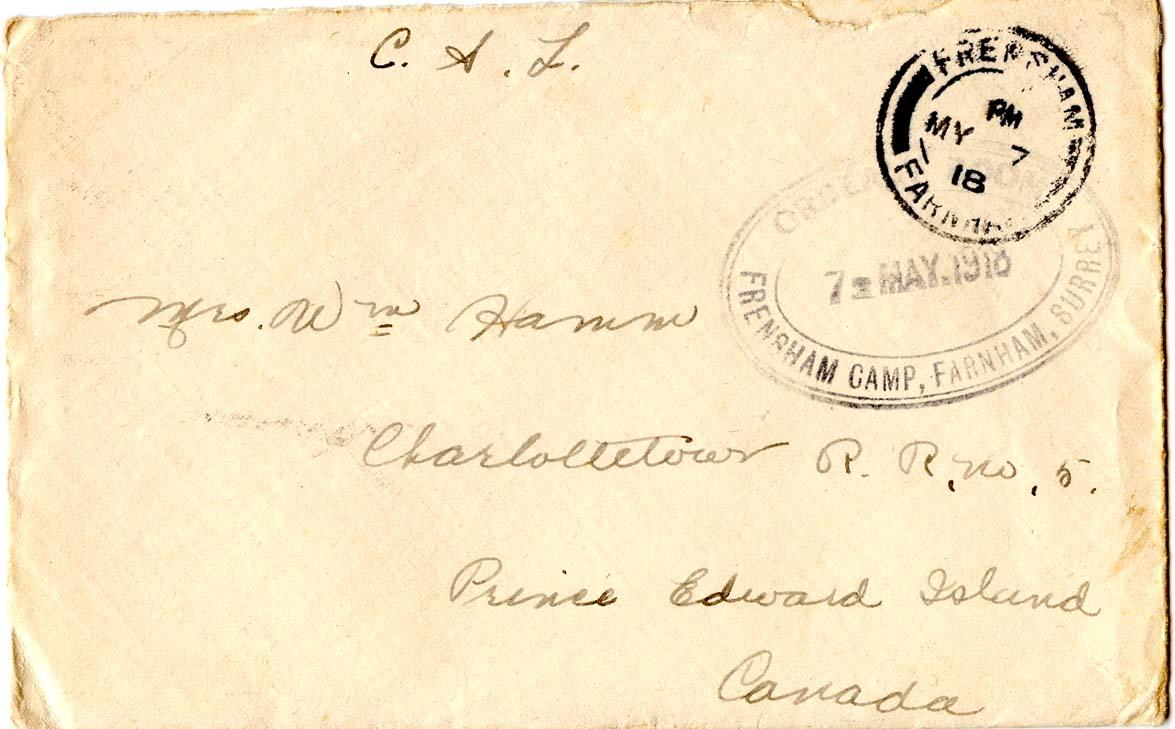 C. A. L.
FRENSHAM
PM
MY 7
18
FARNHAM
ORDERLY ROOM
7 MAY.1918
FRENSHAM CAMP, FARNHAM, SURREY
Mrs. Wm Hamm
Charlottetown R. R. no. 5.
Prince Edward Island
Canada